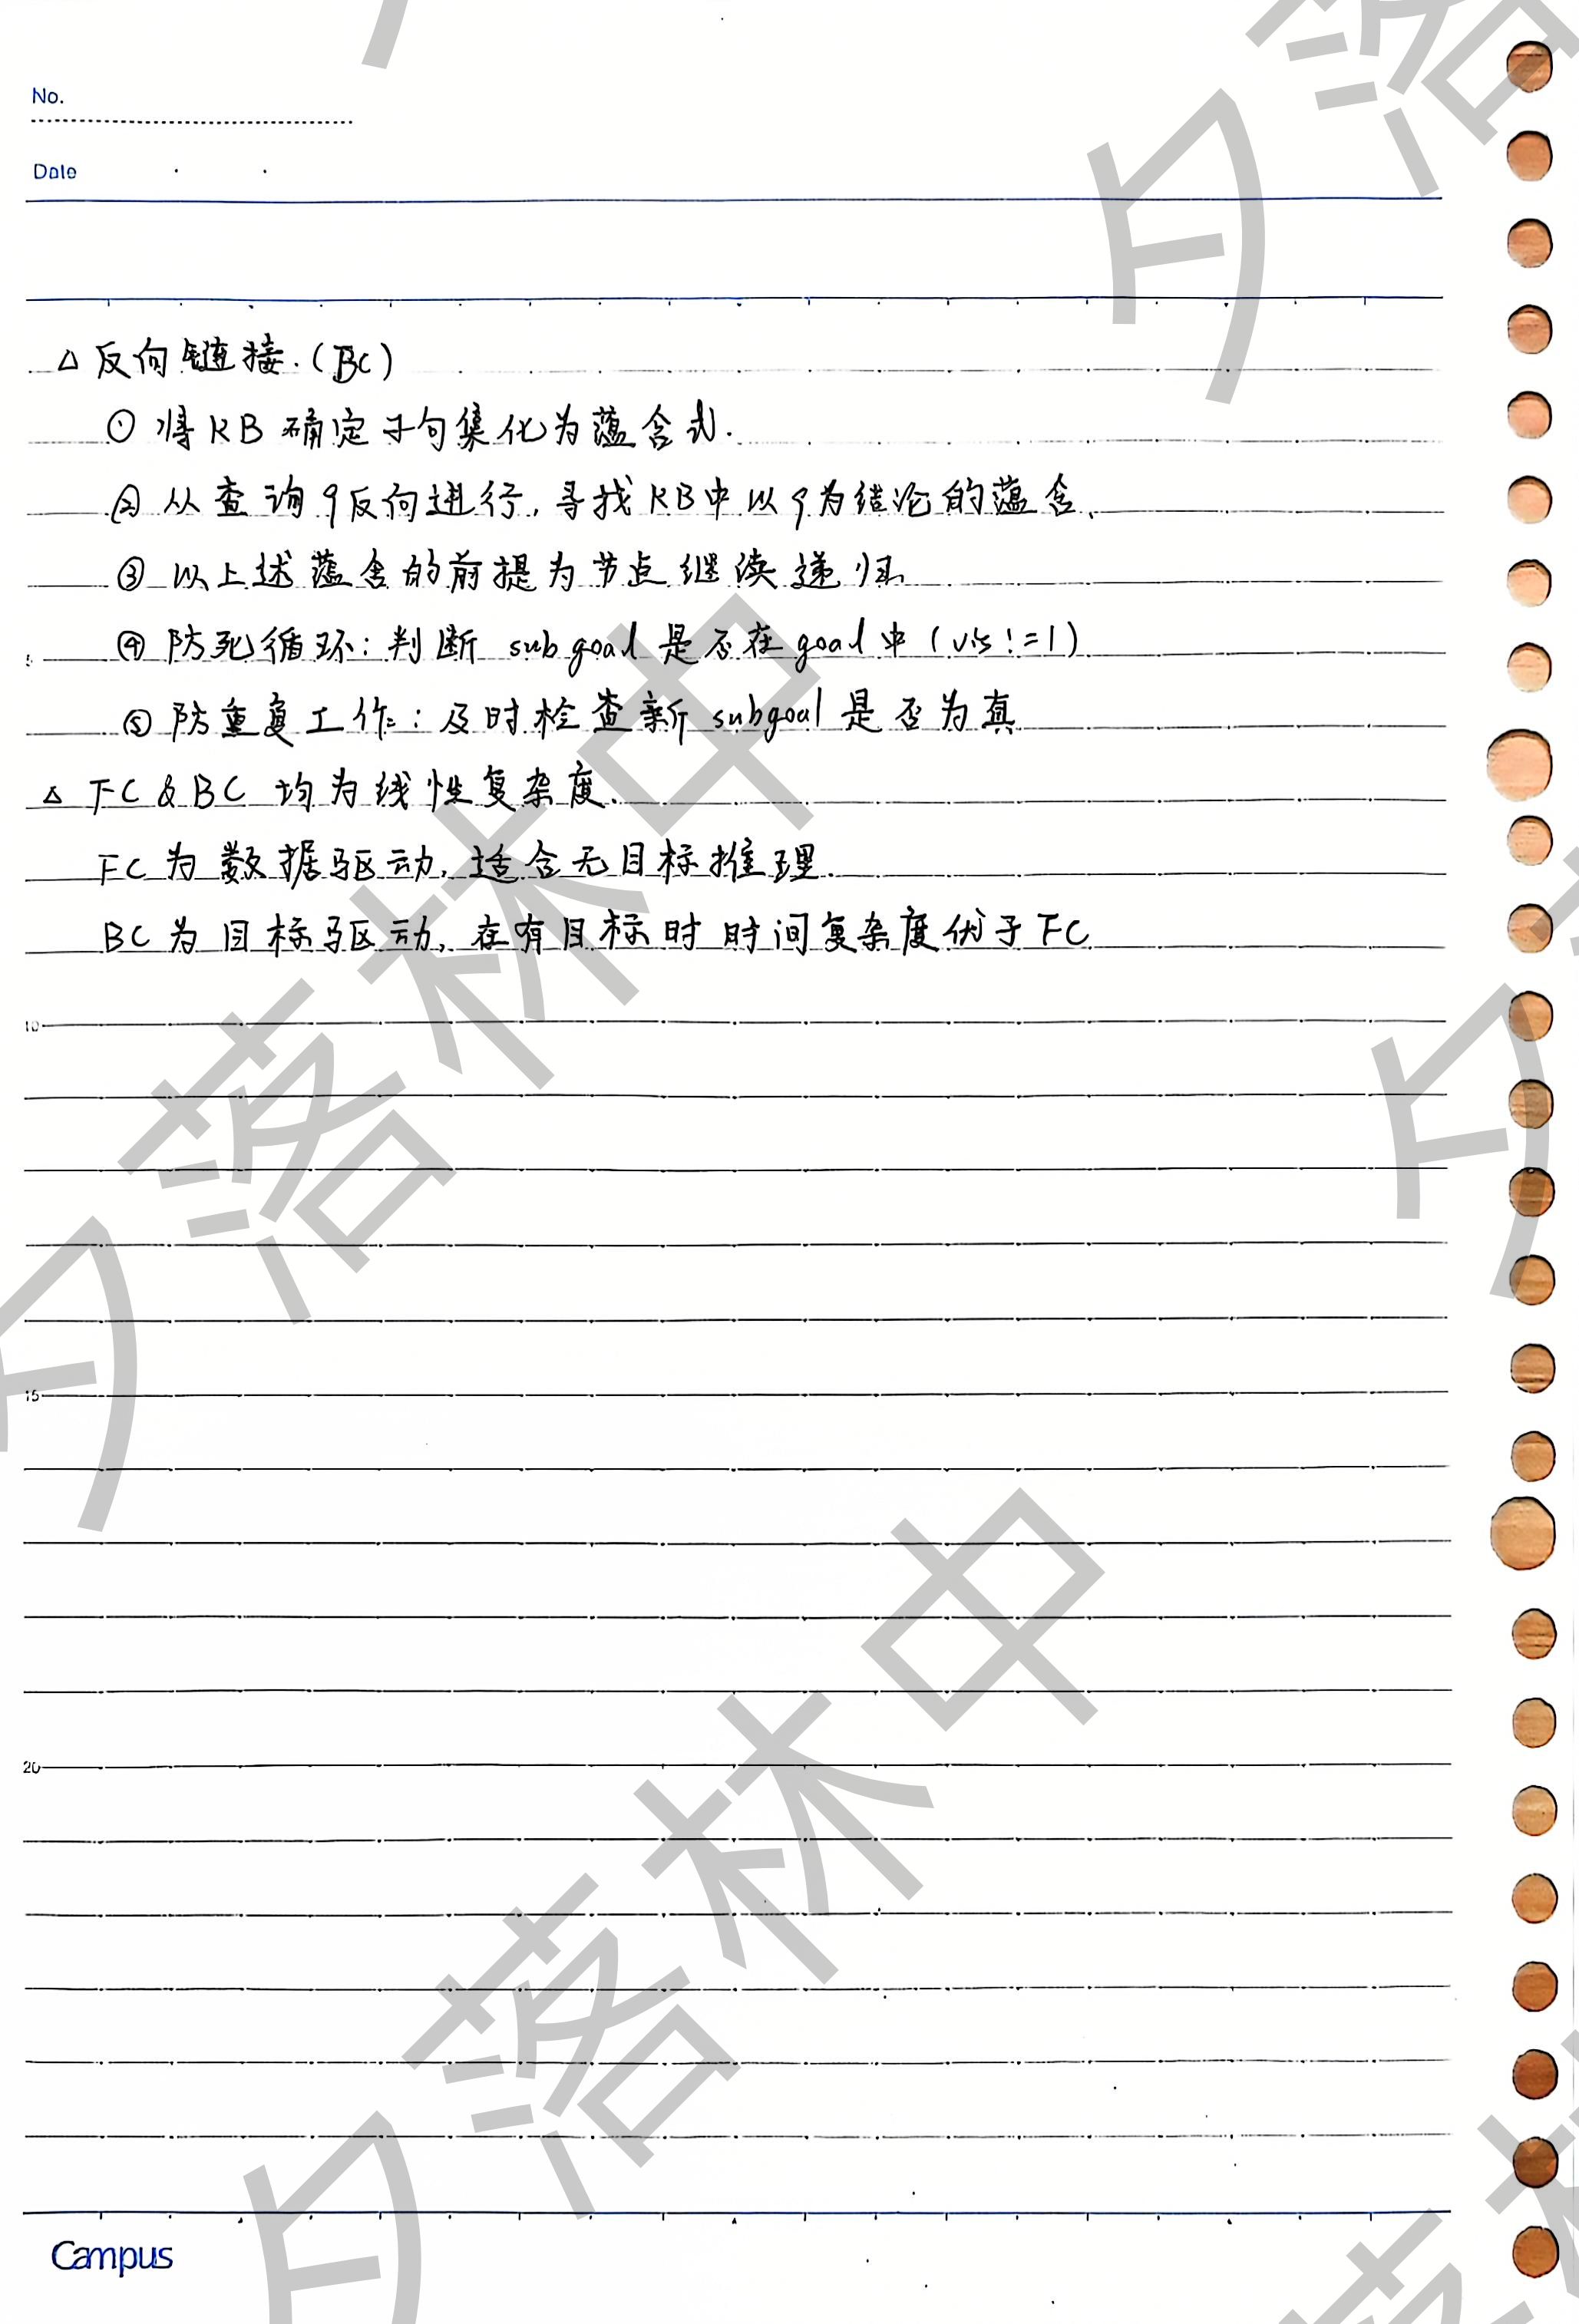 No.
Date
△ 反向链接.(BC)
① 将KB确定子句集化为蕴含式.
② 从查询q反向进行,寻找KB中以q为结论的蕴含、
③ 以上述蕴含的前提为节点继续递归
④ 防死循环:判断 subgoal 是否在goal中(vis!=1)
⑤ 防重复工作:及时检查新subgoal是否为真
△ FC&BC 均为线性复杂度.
FC为数据驱动,适合无目标推理.
BC为目标驱动,在有目标时时间复杂度优于FC
10
15
20
Campus
夕落林中
夕落林中
夕落
夕